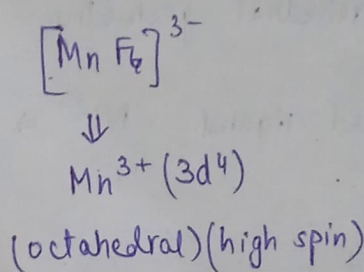 [Mn F₆]³⁻
⇓
Mn³⁺ (3d⁴)
(octahedral) (high spin)